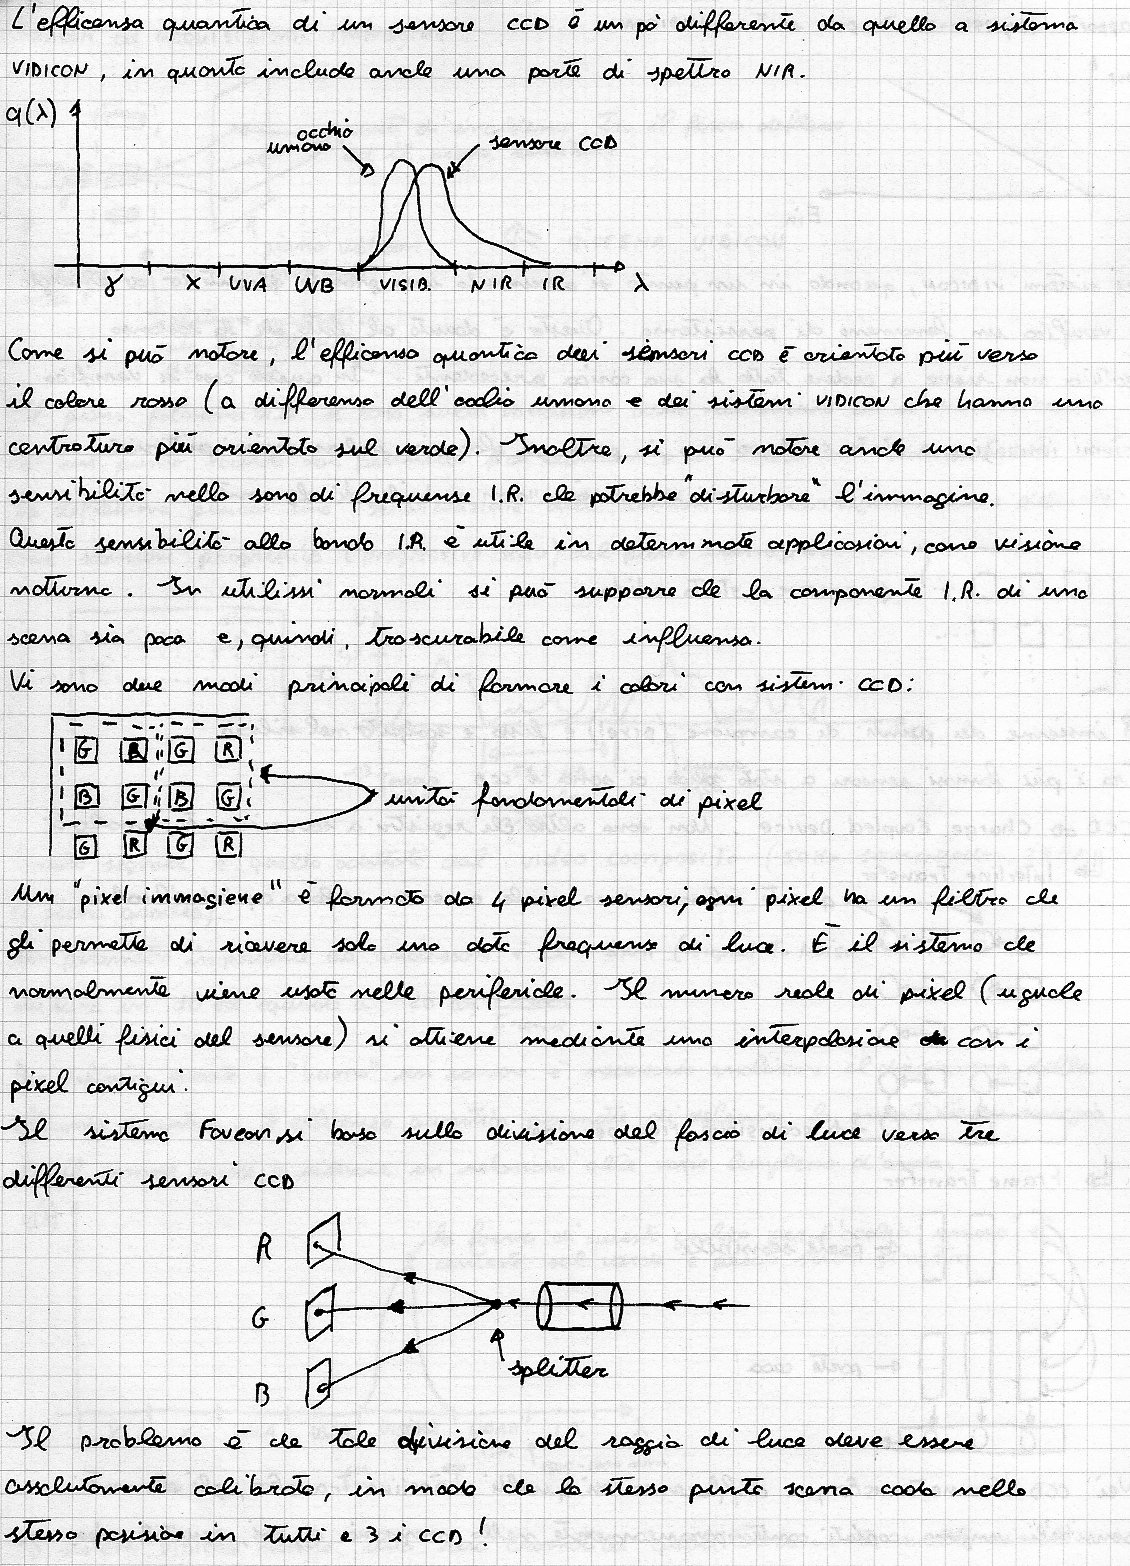 L'efficenza quantica di un sensore CCD è un pò differente da quello a sistema
VIDICON, in quanto include anche una parte di spettro NIR.
q(λ)
occhio
umano
sensore CCD
γ X UVA UVB VISIB. NIR IR λ
Come si può notare, l'efficenza quantica dei sensori CCD è orientata più verso
il colore rosso (a differenza dell'occhio umano e dei sistemi VIDICON che hanno una
centratura più orientata sul verde). Inoltre, si può notare anche una
sensibilità nella zona di frequenze I.R. che potrebbe "disturbare" l'immagine.
Questa sensibilità alla banda I.R. è utile in determinate applicazioni, come visione
notturna. In utilizzi normali si può supporre che la componente I.R. di una
scena sia poca e, quindi, trascurabile come influenza.
Vi sono due modi principali di formare i colori con sistemi CCD:
G R G R
B G B G
unità fondamentali di pixel
G R G R
Un "pixel immagiene" è formato da 4 pixel sensori, ogni pixel ha un filtro che
gli permette di ricevere solo una data frequenza di luce. È il sistema che
normalmente viene usato nelle periferiche. Il numero reale di pixel (uguale
a quelli fisici del sensore) si ottiene mediante una interpolazione con i
pixel contigui.
Il sistema Foveon, si basa sulla divisione del fascio di luce verso tre
differenti sensori CCD
R
G
splitter
B
Il problema è che tale divisione del raggio di luce deve essere
assolutamente calibrata, in modo che lo stesso punto scena cada nella
stessa posizione in tutti e 3 i CCD!